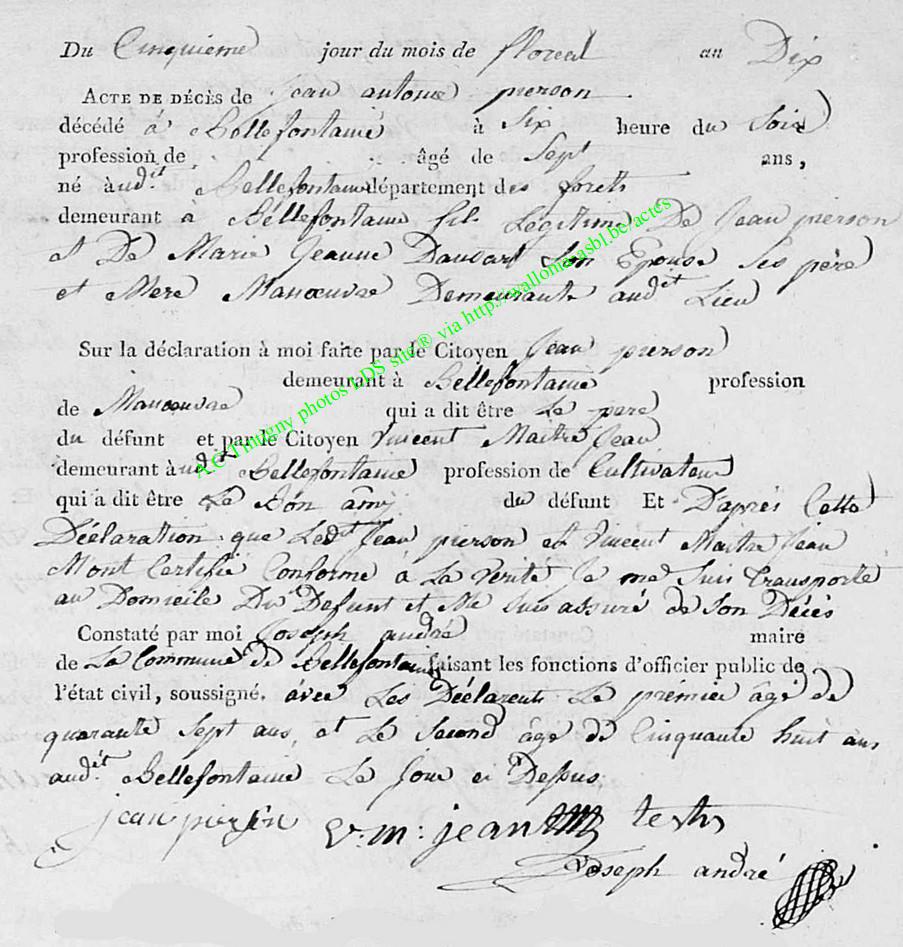 Du Cinquieme jour du mois de floreal an Dix
ACTE DE DÉCÈS de Jean antoine pierson
décédé à Bellefontaine à Six heure du Soir
profession de âgé de Sept ans,
né audit Bellefontaine département des forets
demeurant à Bellefontaine fils Legitime De Jean pierson
et De Marie Jeanne Daudart Son Epouse Ses père
et Mere Manoeuvre Demeurants audit Lieu
Sur la déclaration à moi faite par le Citoyen Jean pierson
demeurant à Bellefontaine profession
de Manoeuvre qui a dit être Le pere
du défunt et par le Citoyen Vincent Maitre Jean
demeurant audt Bellefontaine profession de Cultivateur
qui a dit être Le Bon amy du défunt Et D'aprés Cette
Déclaration que Ledt Jean pierson et Vincent Maitre Jean
Mont Certifié Conforme à La Verité Je me Suis transporté
au Domicile Du Defunt et Me Suis assuré de Son Décès
Constaté par moi Joseph andré maire
de La Commune de Bellefontaine faisant les fonctions d'officier public de
l'état civil, soussigné. avec Les Déclarents Le premier âgé de
quarante Sept ans, et Le Second âgé de Cinquante huit ans
audit Bellefontaine Le Jour ci Dessus
jean pierson v: m: jean
Joseph andré
AC Thugny photos LDS site® via http://evallonieasbl.be/actes